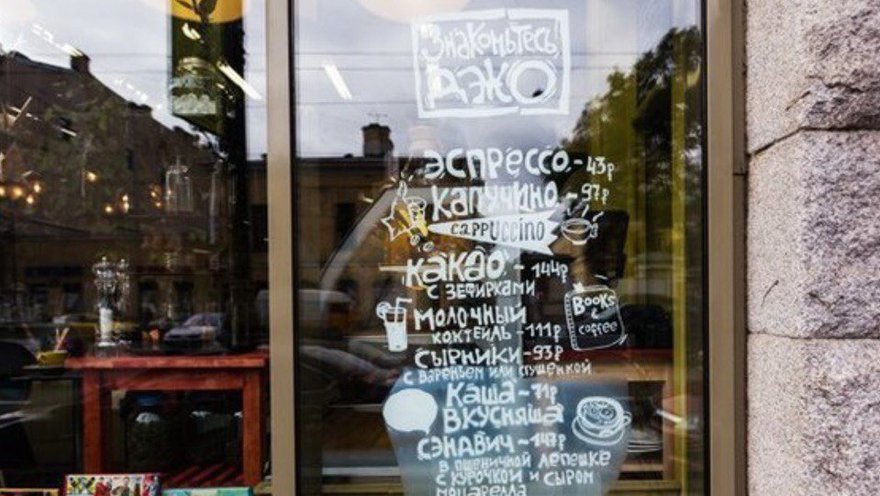 Знакомьтесь!
Джо
Эспрессо - 43р
Капучино - 97р
cappuccino
Какао - 144р
с зефирками
Books & coffee
Молочный
коктейль - 111р
Сырники - 93р
с вареньем или сгущенкой
Каша - 71р
Вкусняша
Сэндвич - 147р
в пшеничной лепешке
с курочкой и сыром
моцарелла